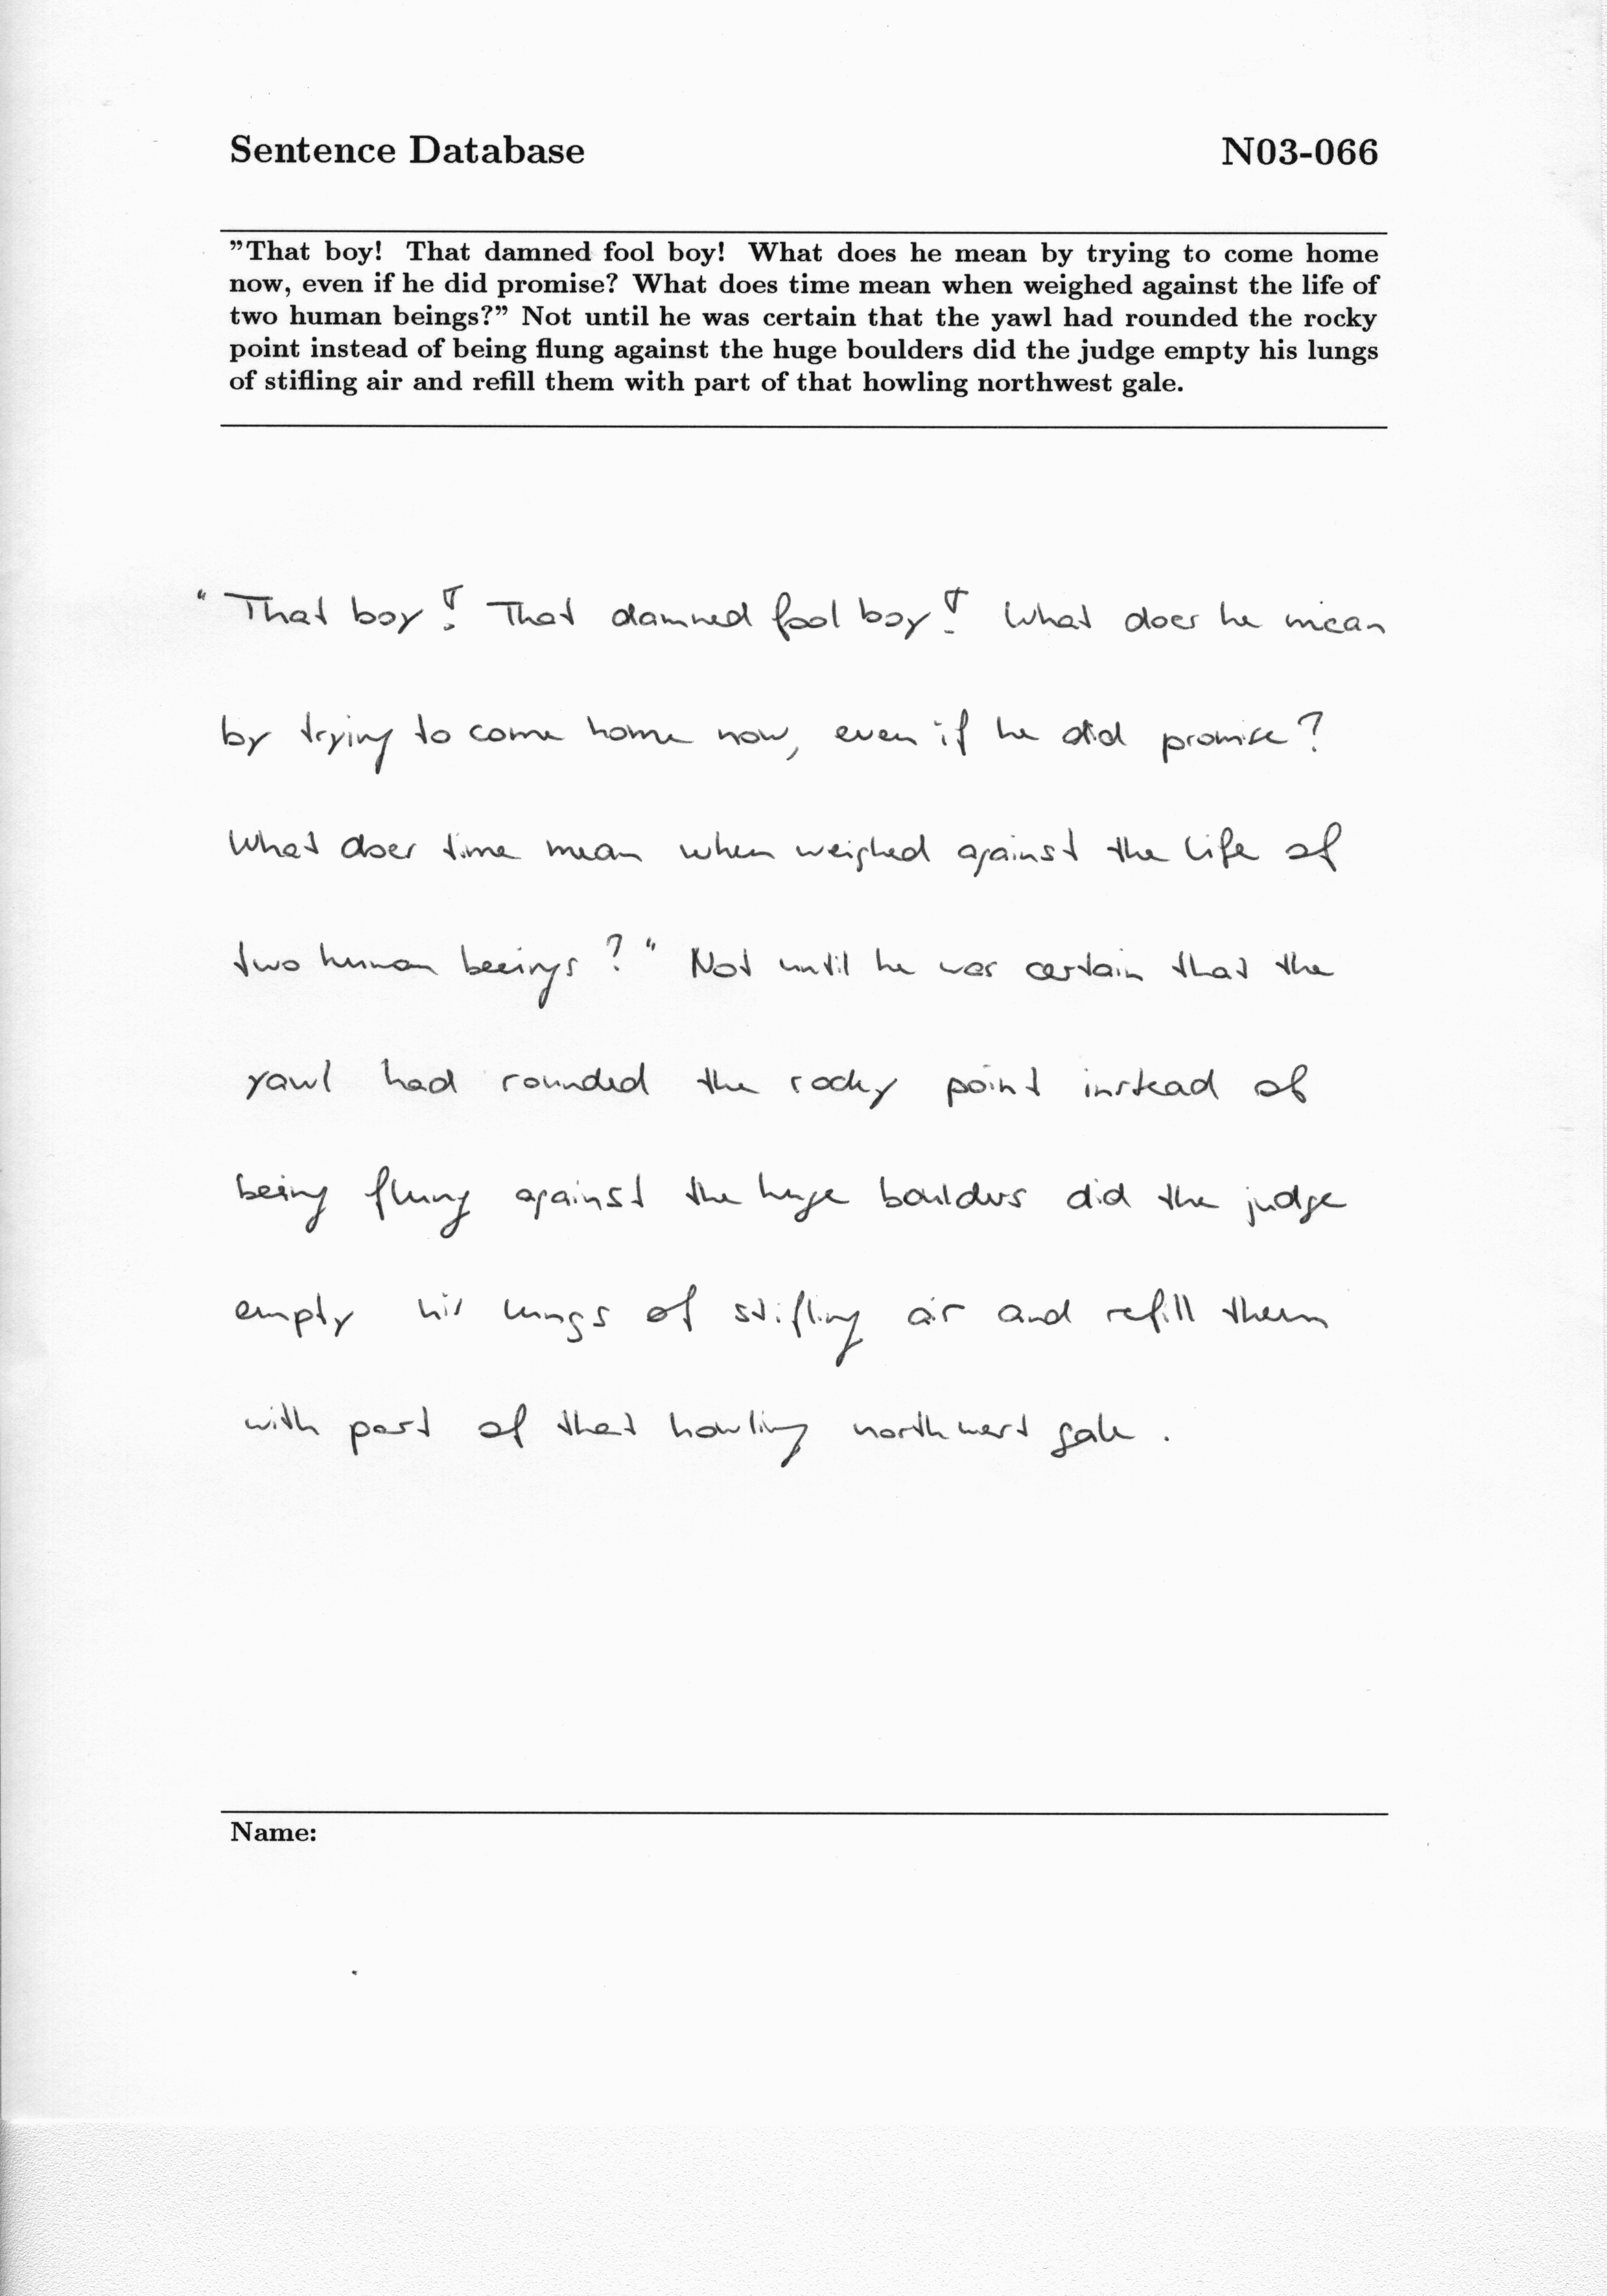 Sentence Database N03-066
”That boy! That damned fool boy! What does he mean by trying to come home
now, even if he did promise? What does time mean when weighed against the life of
two human beings?” Not until he was certain that the yawl had rounded the rocky
point instead of being flung against the huge boulders did the judge empty his lungs
of stifling air and refill them with part of that howling northwest gale.
"That boy! That damned fool boy! What does he mean
by trying to come home now, even if he did promise?
What does time mean when weighed against the life of
two human beeings?" Not until he was certain that the
yawl had rounded the rocky point instead of
being flung against the huge boulders did the judge
empty his lungs of stifling air and refill them
with part of that howling northwest gale.
Name: